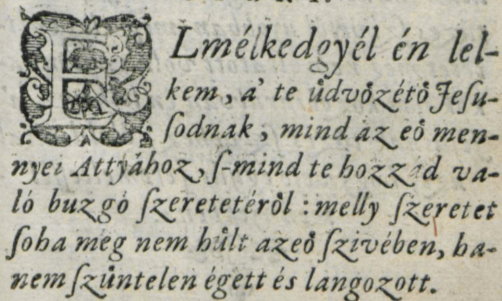 ELmélkedgyél én lel-
kem, a' te ůdvőzétő Jeſu-
ſodnak, mind az eő men-
nyei Attyához, ſ-mind te hozzád va-
ló buzgó ſzeretetéről : melly ſzeretet
ſoha még nem hůlt azeő ſzivében, ha-
nem ſzůntelen égett és langozott.